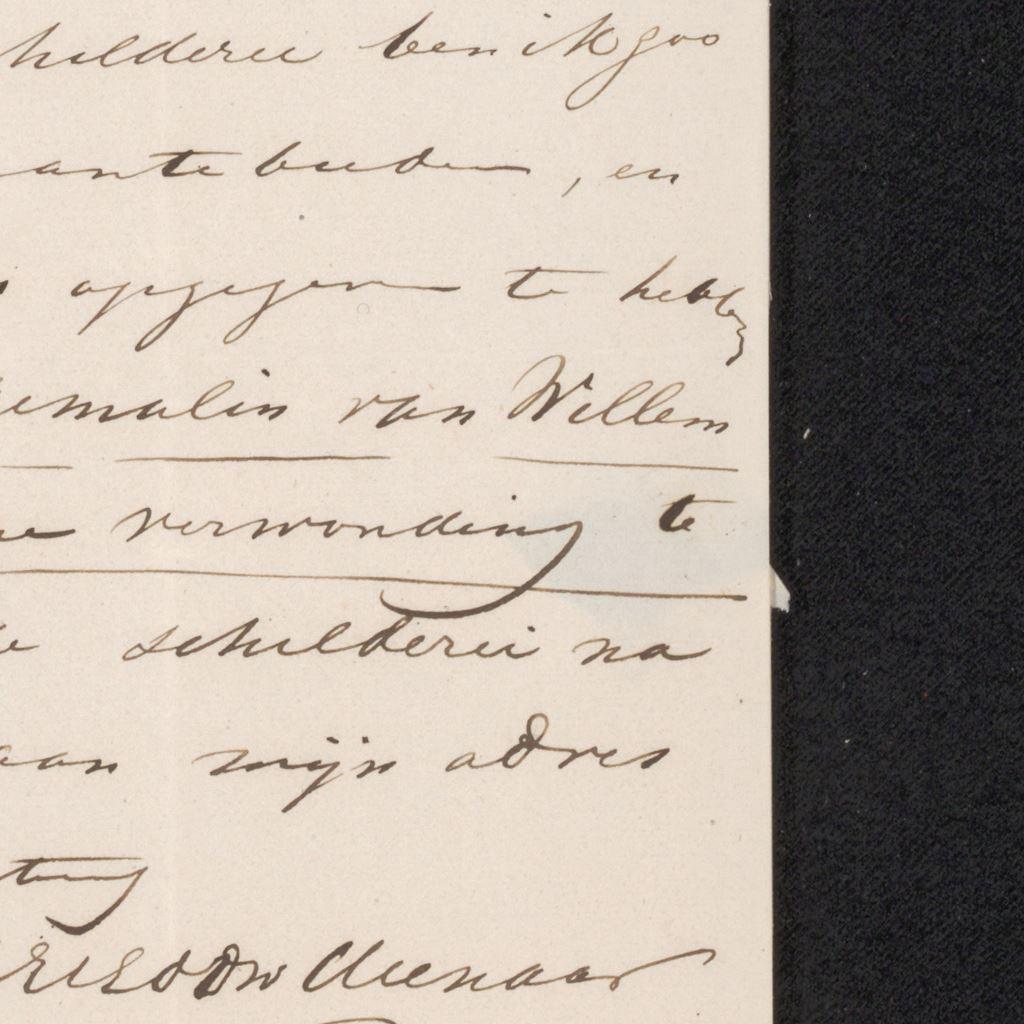 hilderei ben ik zoo
aante bieden, en
opgegeven te hebben
emalin van Willem
ne verwonding te
schilderei na
aan mijn adres
ting
Dienaar